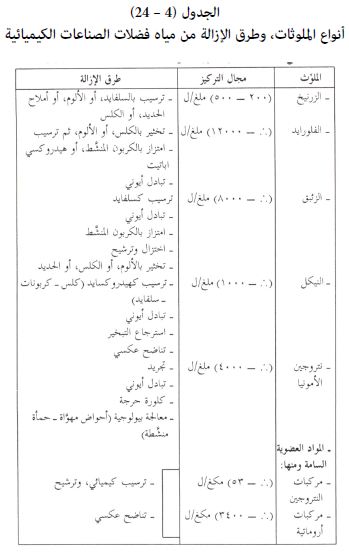 الجدول (4 – 24)
أنواع الملوثات، وطرق الإزالة من مياه فضلات الصناعات الكيميائية
الملوّث مجال التركيز طرق الإزالة
ـ الزرنيخ (٢٠٠ – ٥٠٠) ملغ/ل ـ ترسيب بالسلفايد، أو الألوم، أو أملاح
الحديد، أو الكلس
ـ الفلورايد (٠.٠ – ١٢٠٠٠) ملغ/ل ـ تخثير بالكلس، أو الألوم، ثم ترسيب
ـ امتزاز بالكربون المنشَّط، أو هيدروكسي
اباتيت
ـ تبادل أيوني
ـ الزئبق (٠.٠ – ٨٠٠٠) ملغ/ل ترسيب كسلفايد
ـ تبادل أيوني
ـ امتزاز بالكربون المنشَّط
ـ اختزال وترشيح
ـ تخثير بالألوم، أو الكلس، أو الحديد
ـ النيكل (٠.٠ – ١٠٠٠) ملغ/ل ـ ترسيب كهيدروكسايد (كلس ـ كربونات
ـ سلفايد)
ـ تبادل أيوني
ـ استرجاع التبخير
ـ تناضح عكسي
ـ نتروجين (٠.٠ – ٤٠٠٠) ملغ/ل ـ تجريد
الأمونيا ـ تبادل أيوني
ـ كلورة حرجة
ـ معالجة بيولوجية (أحواض مهوّاة ـ حمأة
منشَّطة)
ـ المواد العضوية
السامة ومنها:
ـ مركبات (٠.٠ – ٥٣) مكغ/ل ـ ترسيب كيميائي، وترشيح
النتروجين
ـ مركبات (٠.٠ – ٣٤٠٠) مكغ/ل ـ تناضح عكسي
أروماتية